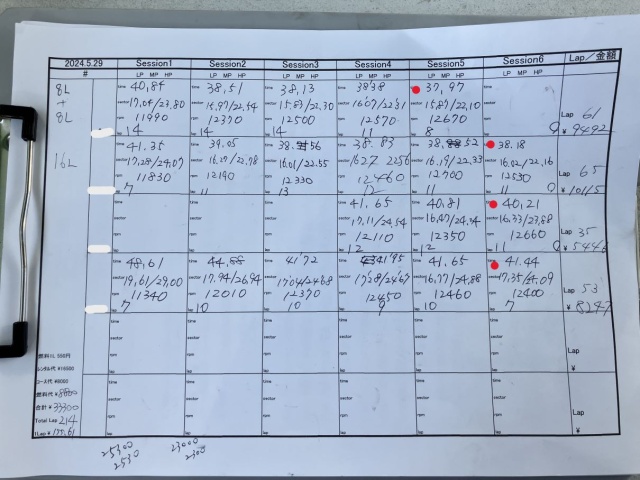 2024.5.29 Session1 Session2 Session3 Session4 Session5 Session6 Lap/金額
# LP MP HP LP MP HP LP MP HP LP MP HP LP MP HP LP MP HP
8L time 40,84 time 38,51 time 38,13 time 38'38 time 37,97 time
+ sector 17,04/23,80 sector 15,97/22,54 sector 15,87/22,30 sector 16'07/22'31 sector 15,87/22,10 sector
8L rpm 11990 rpm 12370 rpm 12500 rpm 12570 rpm 12670 rpm Lap 61
lap 14 lap 14 lap 14 lap 11 lap 8 lap 0 ¥ 9492
16L time 41.35 time 39.05 time 38.56 time 38.83 time 38.52 time 38.18
sector 17,28/24,07 sector 16.27/22,78 sector 16.01/22.55 sector 16.27 22.56 sector 16.19/22,33 sector 16.02/22,16
rpm 11830 rpm 12190 rpm 12330 rpm 12460 rpm 12700 rpm 12530 Lap 65
lap 7 lap 11 lap 13 lap 12 lap 11 lap 11 0 ¥ 10115
time time time time 41,65 time 40,81 time 40,21
sector sector sector sector 17,11/24,54 sector 16,47/24,34 sector 16.33/23,88
rpm rpm rpm rpm 12110 rpm 12350 rpm 12660 Lap 35
lap lap lap lap 12 lap 12 lap 11 0 ¥ 5446
time 48,61 time 44,88 time 41'72 time 41'95 time 41.65 time 41.44
sector 19,61/29,00 sector 17.94/26,94 sector 17'04/24'68 sector 17'28/24'67 sector 16,77/24,88 sector 17,35/24,09
rpm 11340 rpm 12010 rpm 12370 rpm 12450 rpm 12460 rpm 12400 Lap 53
lap 7 lap 10 lap 10 lap 9 lap 10 lap 7 ¥ 8247
time time time time time time
sector sector sector sector sector sector
rpm rpm rpm rpm rpm rpm Lap
lap lap lap lap lap lap ¥
燃料1L 500円
レンタル代 ¥16500
コース代 ¥8000
燃料代 ¥8800
合計 ¥33300
Total Lap 214
1Lap ¥155,61
time time time time time time
sector sector sector sector sector sector
rpm rpm rpm rpm rpm rpm Lap
lap lap lap lap lap lap ¥
25300 23000
2530 2300